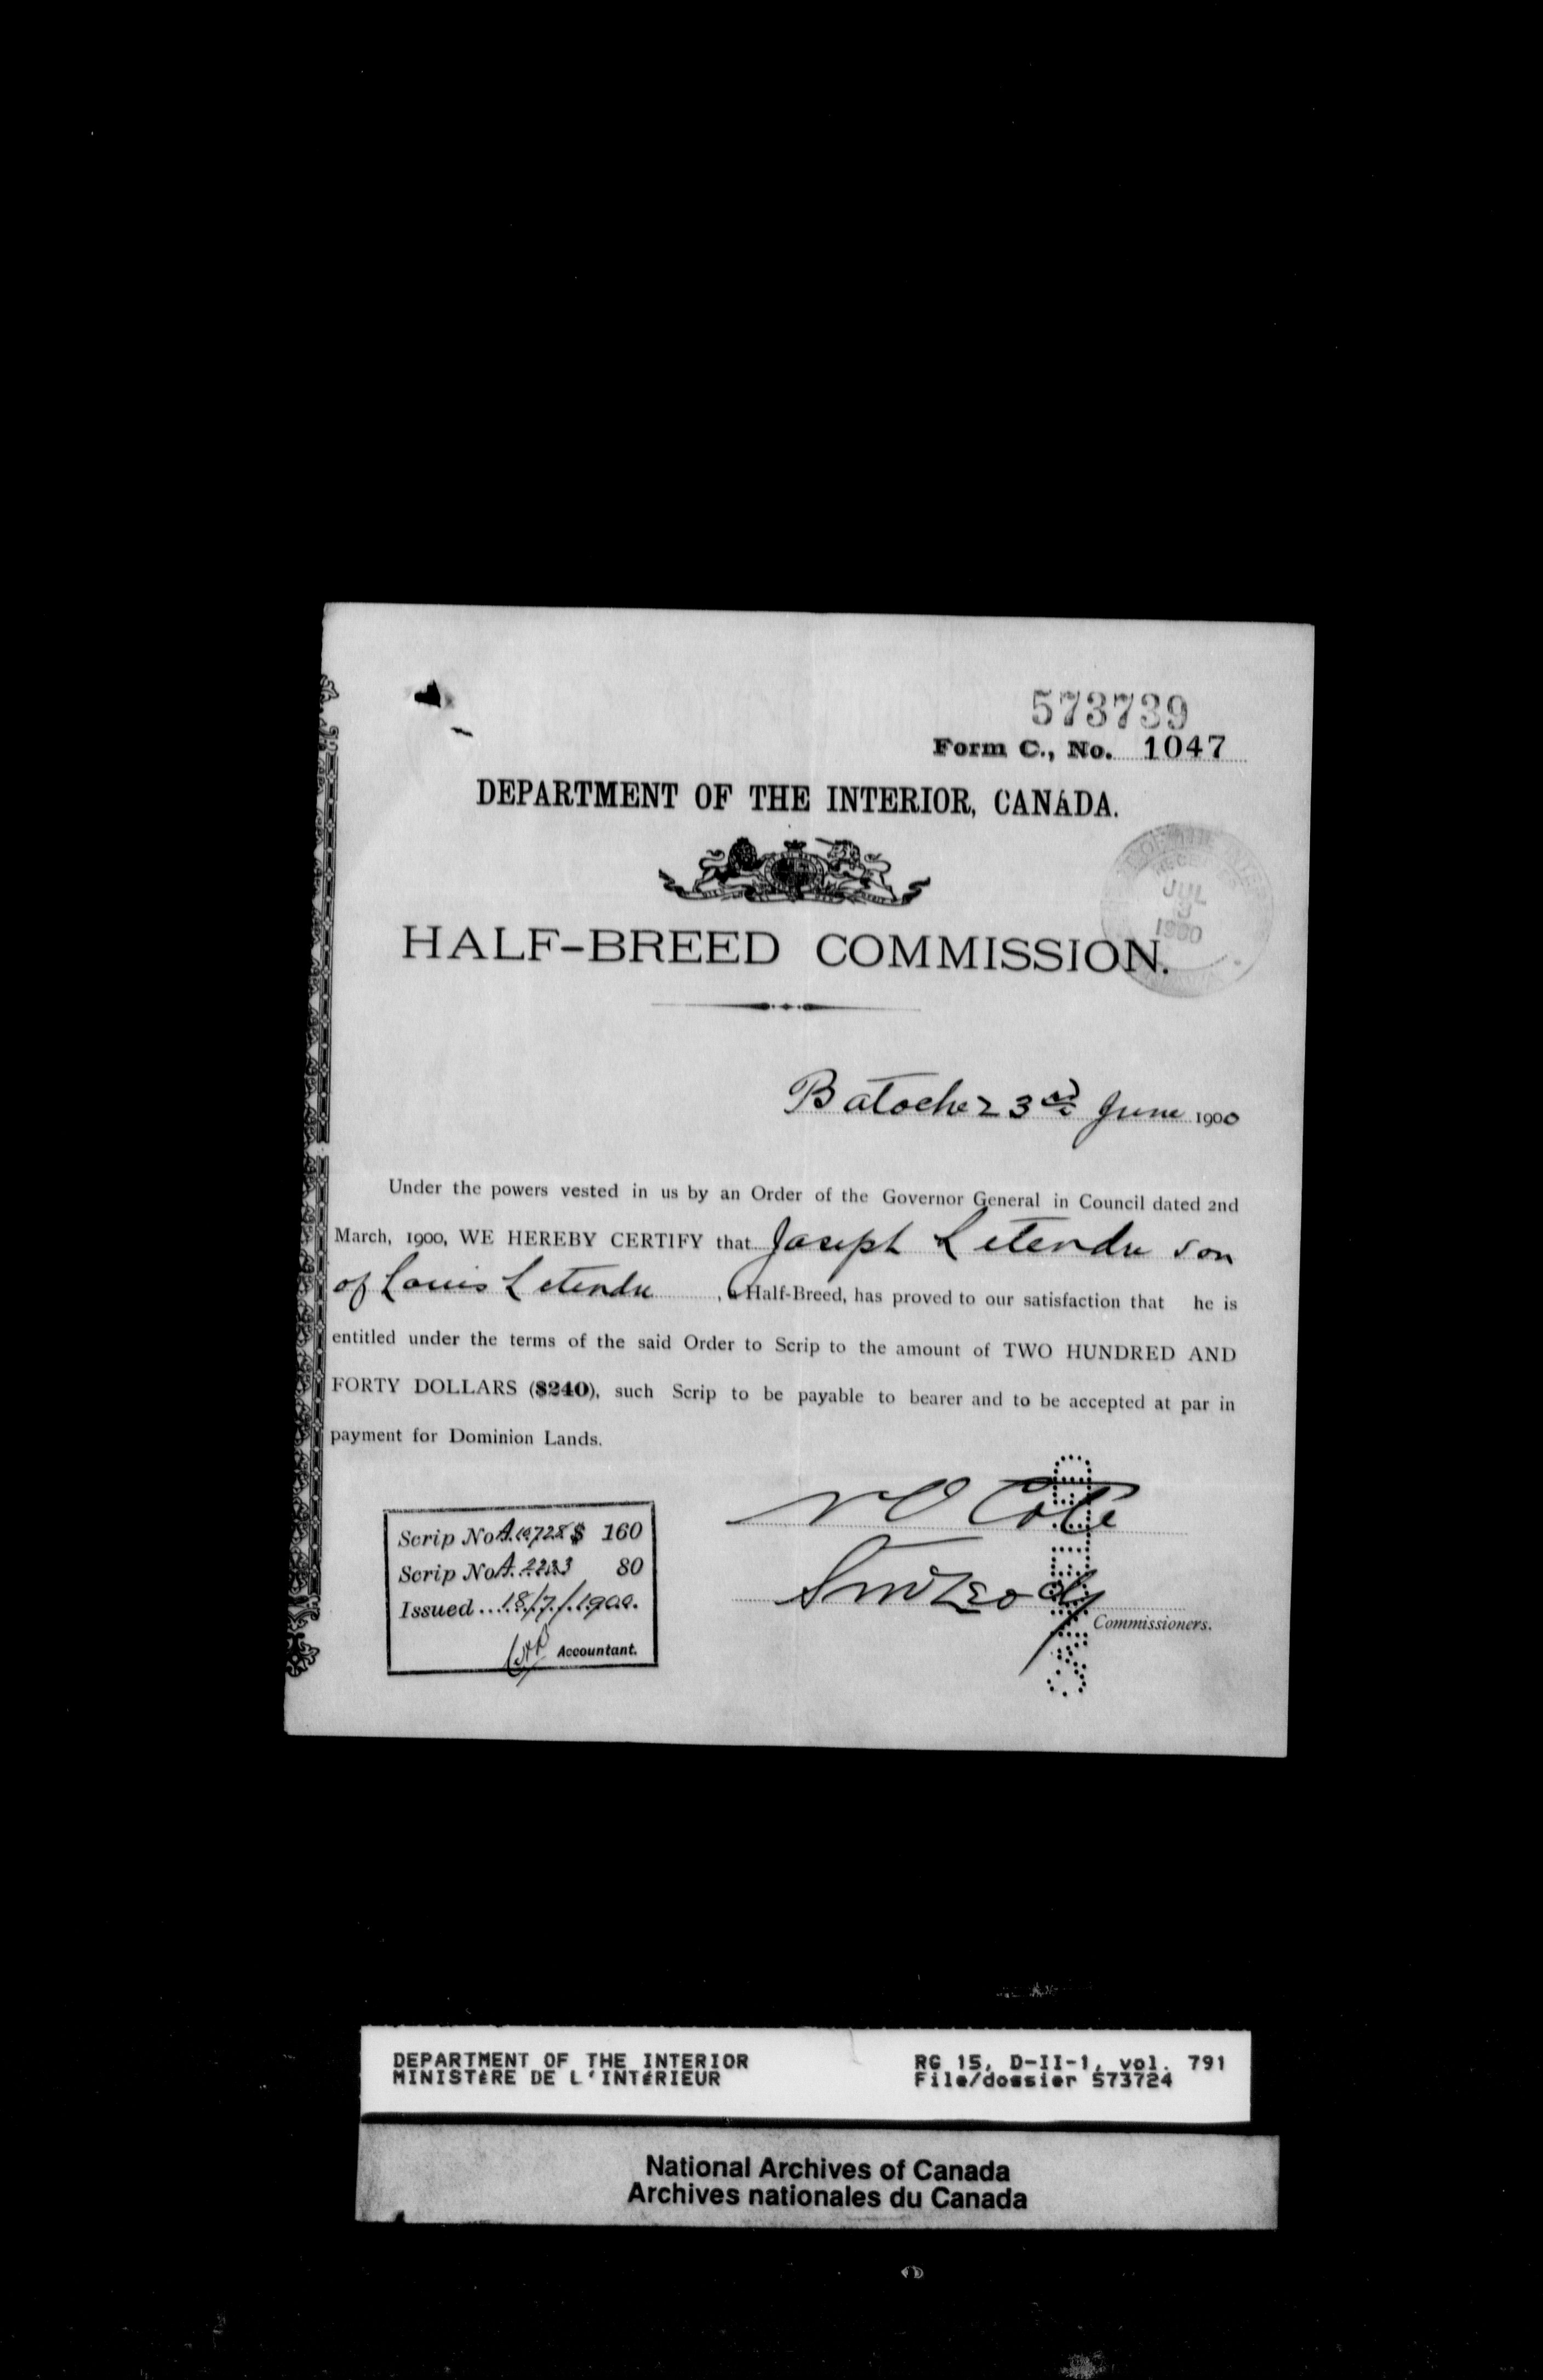 573739
Form C., No. 1047
DEPARTMENT OF THE INTERIOR, CANADA.
JUL
3
1900
HALF-BREED COMMISSION.
Batoche 23rd June 1900
Under the powers vested in us by an Order of the Governor General in Council dated 2nd
March, 1900, WE HEREBY CERTIFY that Joseph Letendre son
of Louis Letendre, a Half-Breed, has proved to our satisfaction that he is
entitled under the terms of the said Order to Scrip to the amount of TWO HUNDRED AND
FORTY DOLLARS ($240), such Scrip to be payable to bearer and to be accepted at par in
payment for Dominion Lands.
Scrip No A. 10728 $ 160
Scrip No A. 2233 80
Issued 18/7/1900.
Accountant.
N O Coté
Commissioners.
DEPARTMENT OF THE INTERIOR
MINISTÈRE DE L'INTÉRIEUR
RG 15, D-II-1, vol. 791
File/dossier 573724
National Archives of Canada
Archives nationales du Canada